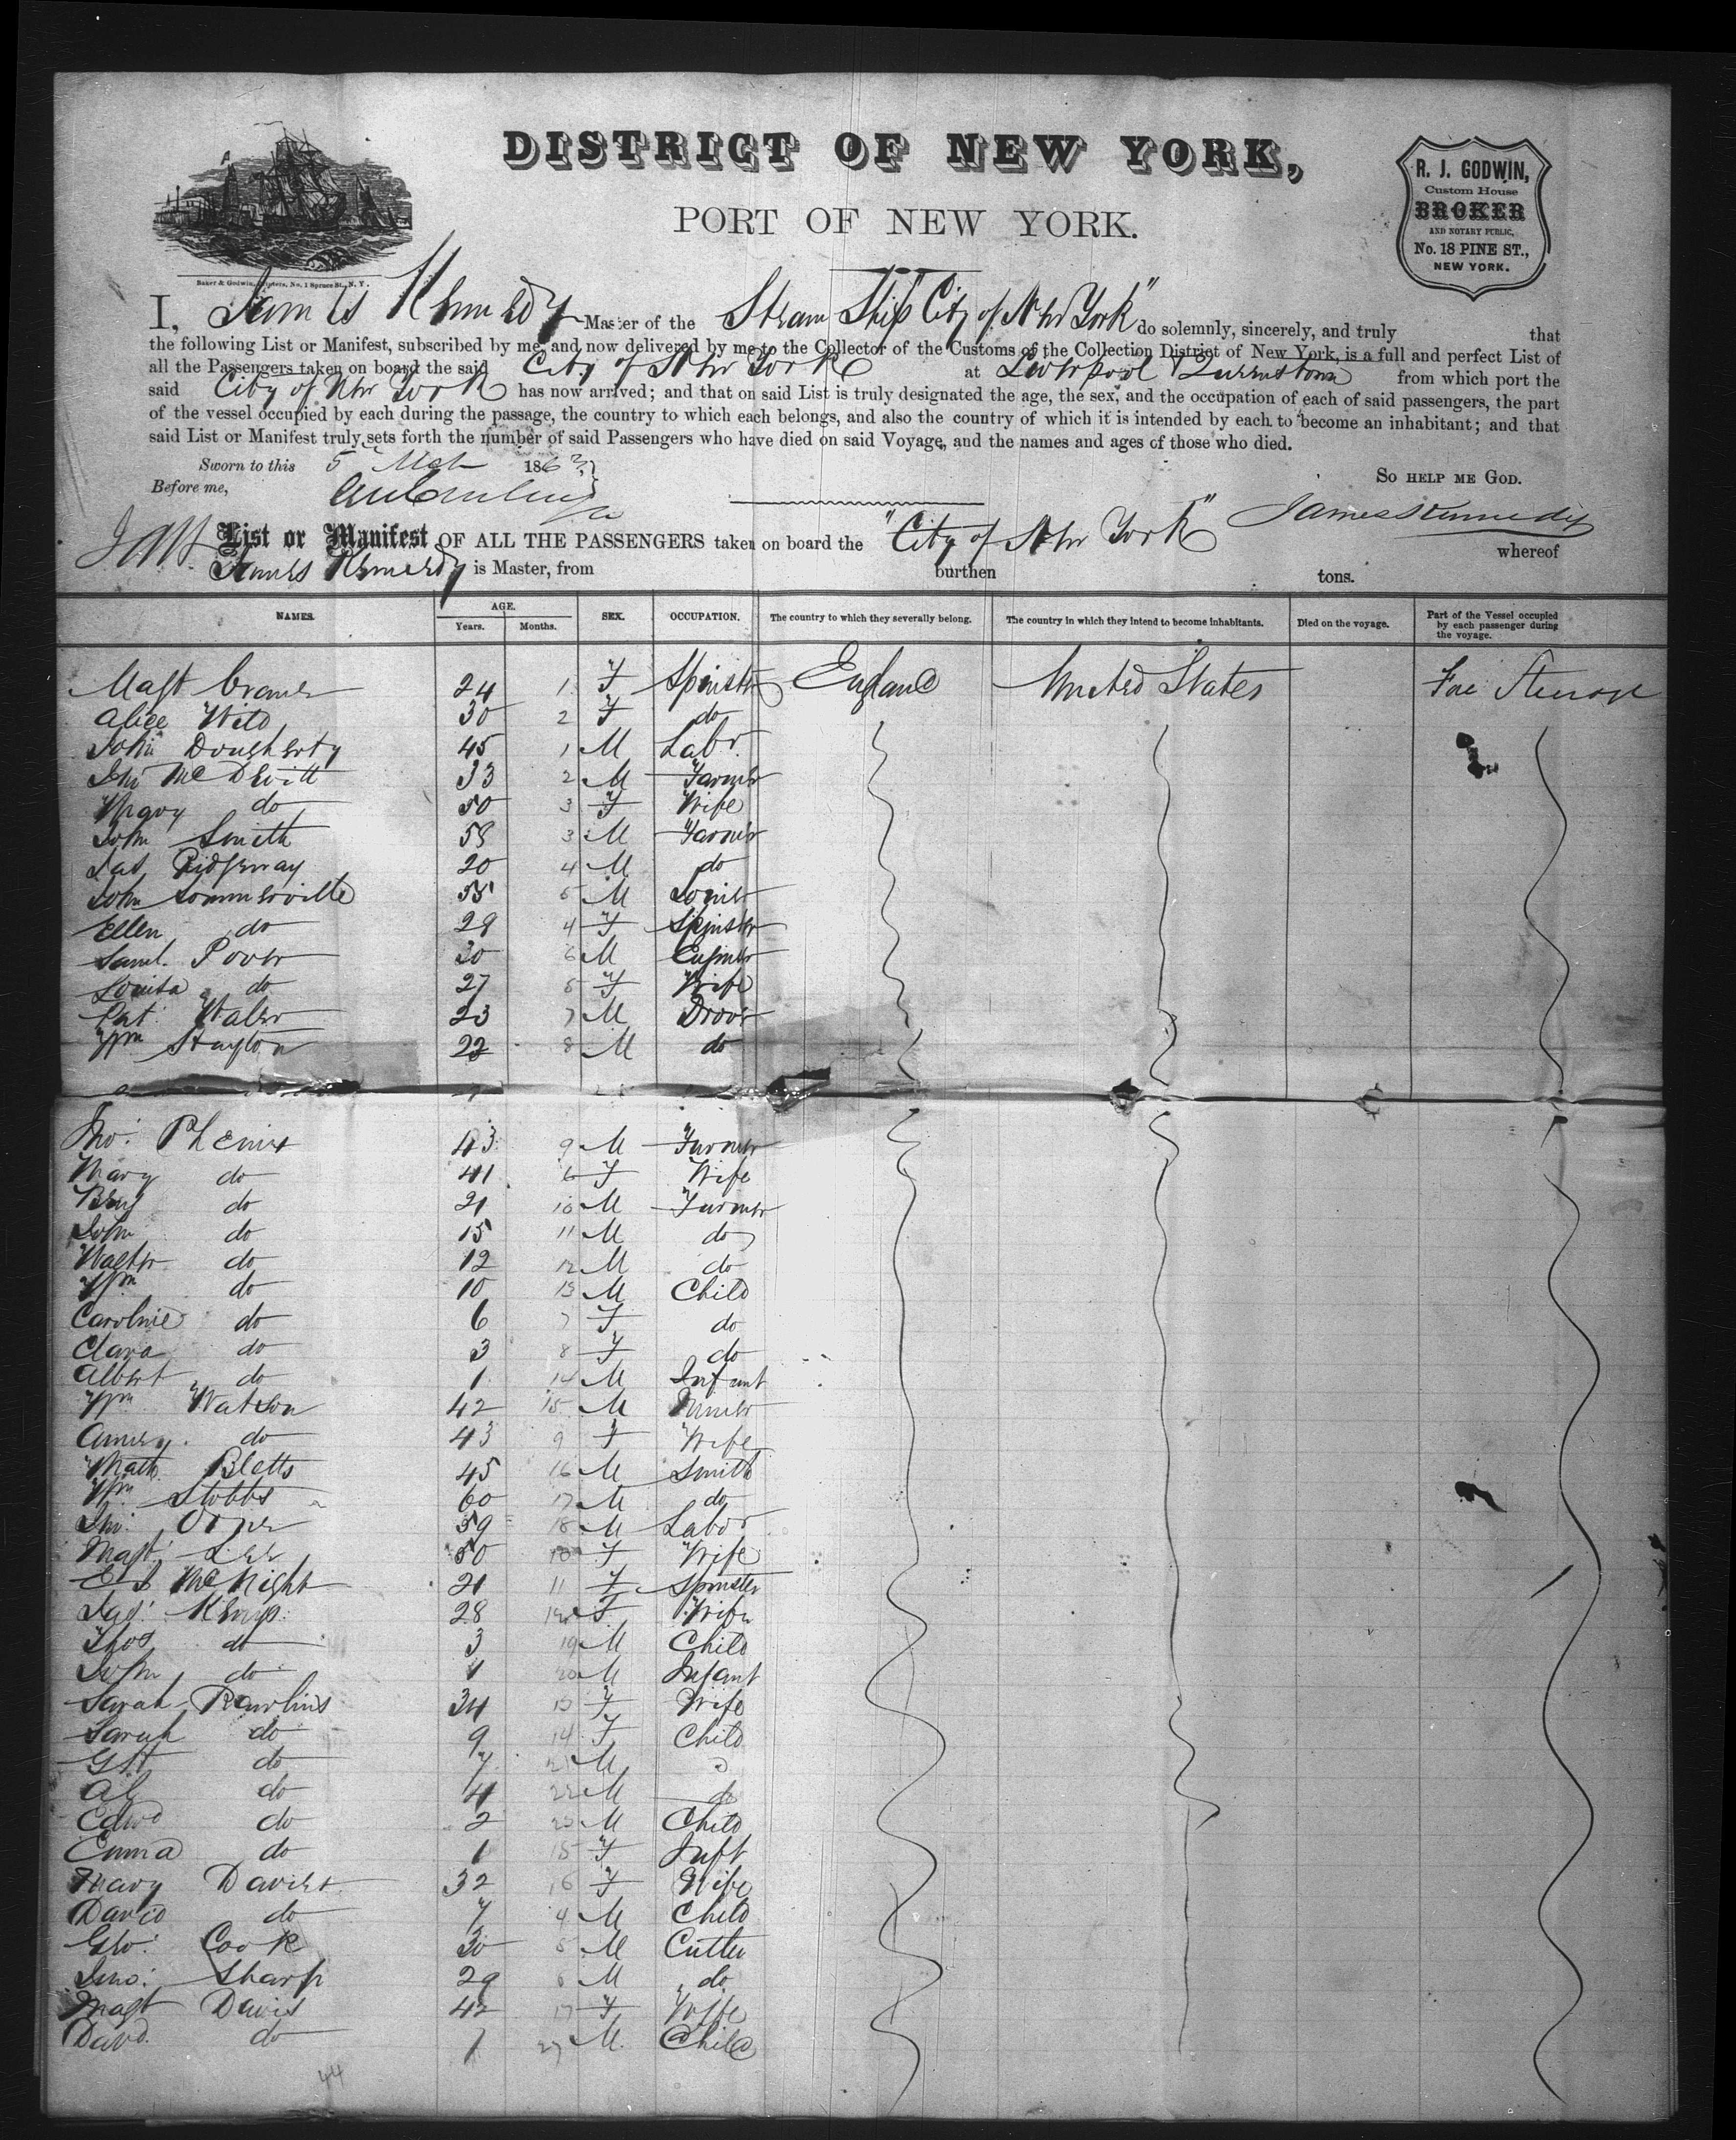 DISTRICT OF NEW YORK,
PORT OF NEW YORK.
R. J. GODWIN,
Custom House
BROKER
AND NOTARY PUBLIC,
No. 18 PINE ST.,
NEW YORK.
Baker & Godwin, Printers, No. 1 Spruce St., N. Y.
I, James Kennedy Master of the Steam Ship "City of New York" do solemnly, sincerely, and truly that
the following List or Manifest, subscribed by me, and now delivered by me to the Collector of the Customs of the Collection District of New York, is a full and perfect List of
all the Passengers taken on board the said City of New York at Liverpool & Queenstown from which port the
said City of New York has now arrived; and that on said List is truly designated the age, the sex, and the occupation of each of said passengers, the part
of the vessel occupied by each during the passage, the country to which each belongs, and also the country of which it is intended by each to become an inhabitant; and that
said List or Manifest truly sets forth the number of said Passengers who have died on said Voyage, and the names and ages of those who died.
Sworn to this 5 Mch 1863
SO HELP ME GOD.
Before me,
James Kennedy
List or Manifest OF ALL THE PASSENGERS taken on board the "City of New York" whereof
James Kennedy is Master, from burthen tons.
NAMES. AGE. SEX. OCCUPATION. The country to which they severally belong. The country in which they intend to become inhabitants. Died on the voyage. Part of the Vessel occupied by each passenger during the voyage.
Years. Months.
Magt Cramer 24 1 F Spinster England United States Steerage
Alice Wild 30 2 F do
John Dougherty 45 1 M Labr.
Jno McDevitt 33 2 M Farmer
Mary do 50 3 F Wife
John Smith 58 3 M Farmer
Jas Ridgeway 20 4 M do
John Sommerville 55 5 M Joiner
Ellen do 29 4 F Spinster
Saml. Power 30 6 M
Louisa do 27 5 F Wife
Pat 23 7 M Drover
Wm Stayton 22 8 M do
Tho: Phenix 43 9 M Farmer
Mary do 41 6 F Wife
Benj do 21 10 M Farmer
John do 15 11 M do
Walter do 12 12 M do
Wm do 10 13 M Child
Caroline do 6 7 F do
Clara do 3 8 F do
Albert do 1 14 M Infant
Wm Watson 42 15 M
do 43 9 F Wife
Math Bletts 45 16 M Smith
Wm Stobbs 60 17 M do
59 18 M Labor
Magt Lee 50 10 F Wife
McKight 21 11 F Spinster
Jas: Kemp 28 12 F Wife
Thos do 3 19 M Child
John do 1 20 M Infant
Sarah Rawlins 34 13 F Wife
Sarah do 9 14 F Child
do 7 21 M
Al do 4 22 M do
Edwd do 2 23 M Child
Emma do 1 15 F Inft
Mary Davies 32 16 F Wife
David do 7 4 M Child
Geo: Cook 30 5 M Cutler
Jno: Sharp 29 6 M do
Magt Davis 42 17 F Wife
David do 1 27 M Child
44